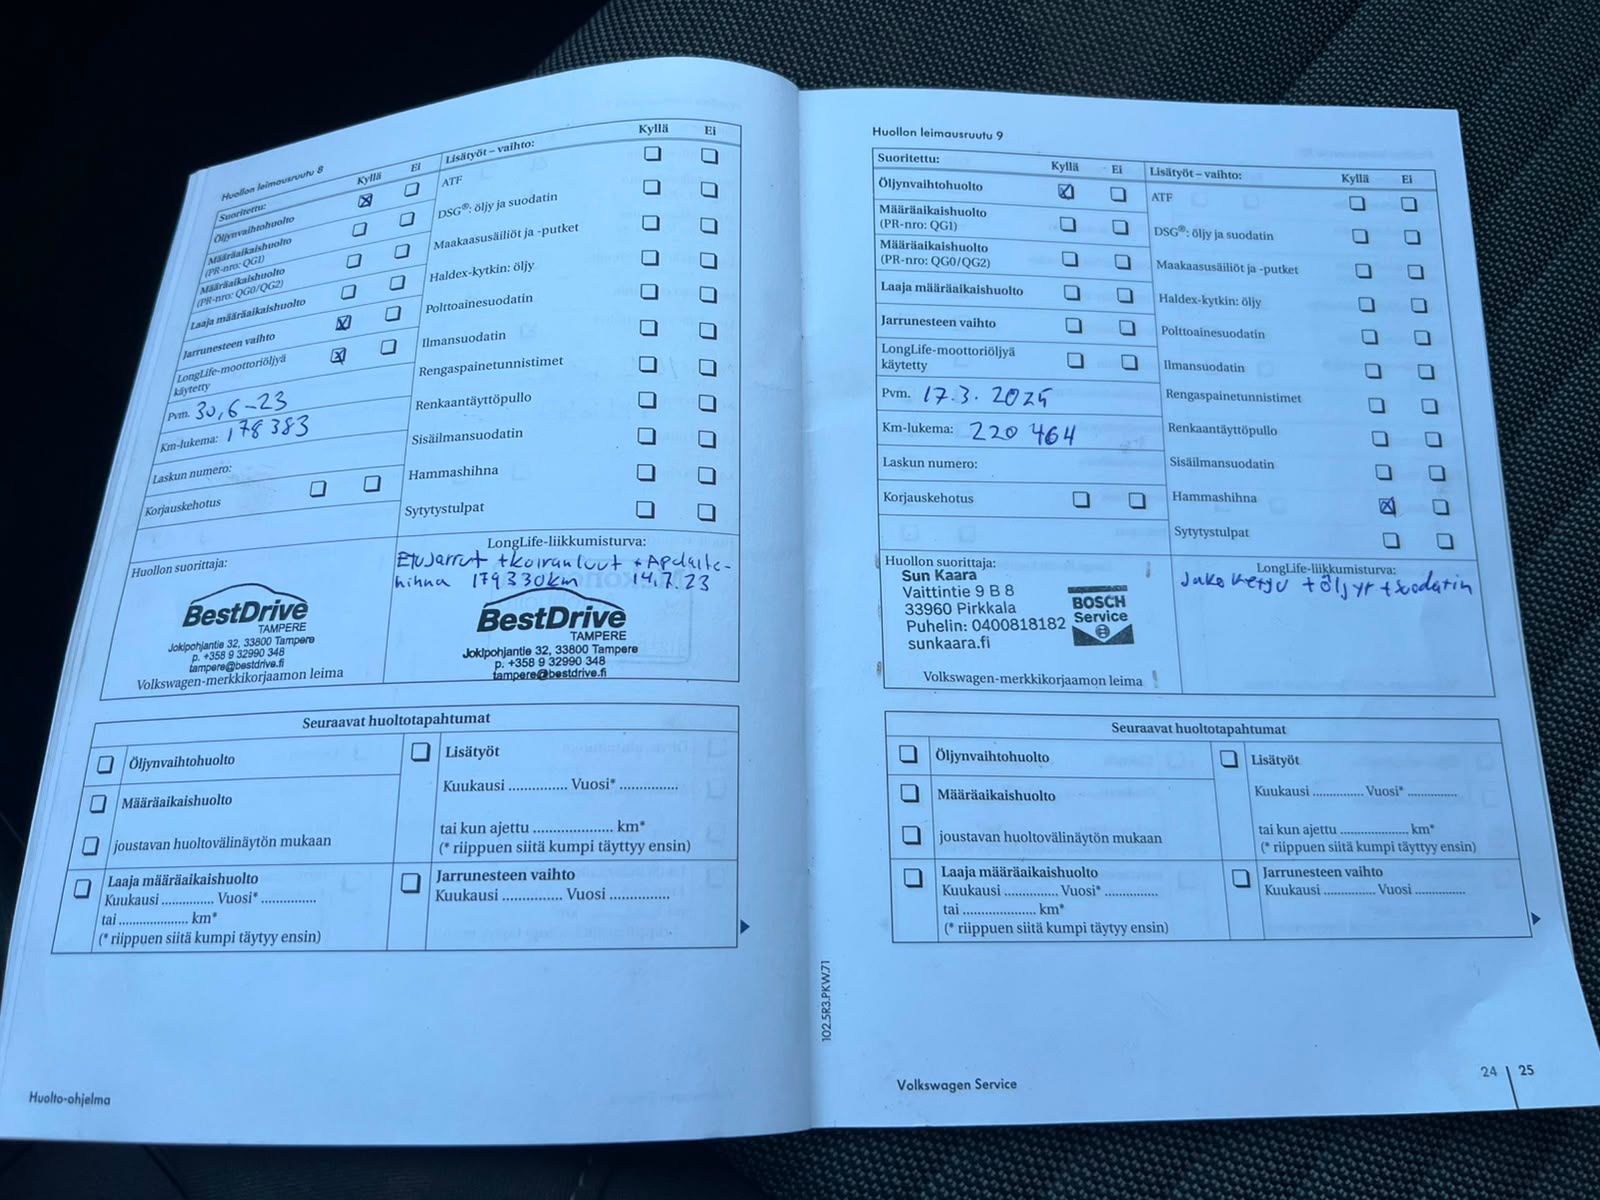 Huollon leimausruutu 8
Suoritettu: Kyllä Ei
Öljynvaihtohuolto
Määräaikaishuolto
(PR-nro: QG1)
Määräaikaishuolto
(PR-nro: QG0/QG2)
Laaja määräaikaishuolto
Jarrunesteen vaihto
LongLife-moottoriöljyä
käytetty
Pvm. 30.6-23
Km-lukema: 178383
Laskun numero:
Korjauskehotus
Lisätyöt – vaihto: Kyllä Ei
ATF
DSG®: öljy ja suodatin
Maakaasusäiliöt ja -putket
Haldex-kytkin: öljy
Polttoainesuodatin
Ilmansuodatin
Rengaspainetunnistimet
Renkaantäyttöpullo
Sisäilmansuodatin
Hammashihna
Sytytystulpat
Huollon suorittaja:
BestDrive
TAMPERE
Jokipohjantie 32, 33800 Tampere
p. +358 9 32990 348
tampere@bestdrive.fi
Volkswagen-merkkikorjaamon leima
LongLife-liikkumisturva:
Etujarrut + koiranluut + Apulaite-
hihna 179330km 14.7.23
BestDrive
TAMPERE
Jokipohjantie 32, 33800 Tampere
p. +358 9 32990 348
tampere@bestdrive.fi
Seuraavat huoltotapahtumat
Öljynvaihtohuolto
Määräaikaishuolto
joustavan huoltovälinäytön mukaan
Laaja määräaikaishuolto
Kuukausi ............... Vuosi* ...............
tai .................... km*
(* riippuen siitä kumpi täytyy ensin)
Lisätyöt
Kuukausi ............... Vuosi* ...............
tai kun ajettu .................... km*
(* riippuen siitä kumpi täyttyy ensin)
Jarrunesteen vaihto
Kuukausi ............... Vuosi ...............
Huolto-ohjelma
Huollon leimausruutu 9
Suoritettu: Kyllä Ei
Öljynvaihtohuolto
Määräaikaishuolto
(PR-nro: QG1)
Määräaikaishuolto
(PR-nro: QG0/QG2)
Laaja määräaikaishuolto
Jarrunesteen vaihto
LongLife-moottoriöljyä
käytetty
Pvm. 17.3.2025
Km-lukema: 220464
Laskun numero:
Korjauskehotus
Lisätyöt – vaihto: Kyllä Ei
ATF
DSG®: öljy ja suodatin
Maakaasusäiliöt ja -putket
Haldex-kytkin: öljy
Polttoainesuodatin
Ilmansuodatin
Rengaspainetunnistimet
Renkaantäyttöpullo
Sisäilmansuodatin
Hammashihna
Sytytystulpat
Huollon suorittaja:
Sun Kaara
Vaittintie 9 B 8
33960 Pirkkala
Puhelin: 0400818182
sunkaara.fi
BOSCH
Service
Volkswagen-merkkikorjaamon leima
LongLife-liikkumisturva:
Jakoketju + Öljyt + suodatin
Seuraavat huoltotapahtumat
Öljynvaihtohuolto
Määräaikaishuolto
joustavan huoltovälinäytön mukaan
Laaja määräaikaishuolto
Kuukausi ............... Vuosi* ...............
tai .................... km*
(* riippuen siitä kumpi täytyy ensin)
Lisätyöt
Kuukausi ............... Vuosi* ...............
tai kun ajettu .................... km*
(* riippuen siitä kumpi täyttyy ensin)
Jarrunesteen vaihto
Kuukausi ............... Vuosi ...............
102.5R3.PKW.71
Volkswagen Service
24 25